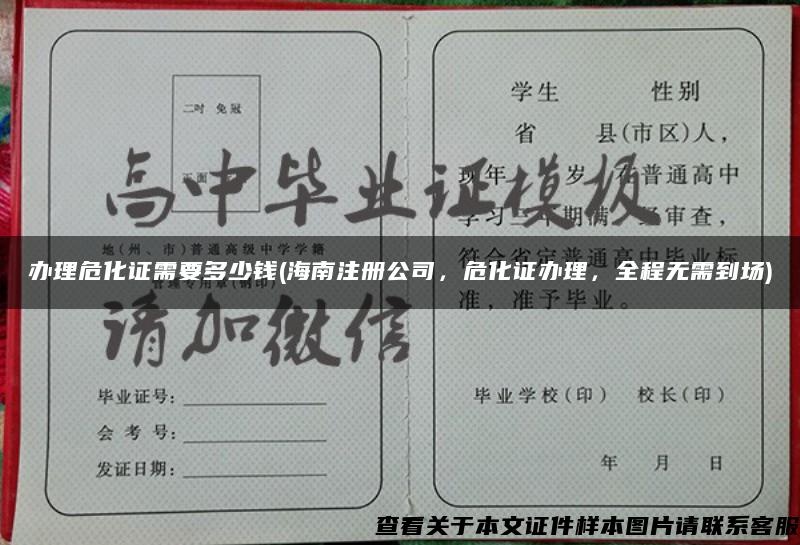 学生 性别
省 县(市区)人，
二吋 免冠
正面
高中毕业证模板
现年 岁，在普通高中
地(州、市)普通高级中学学籍
办理危化证需要多少钱(海南注册公司，危化证办理，全程无需到场)
管理专用章(钢印)
准，准予毕业。
请加微信
毕业证号：
会考号：
发证日期：
毕业学校(印) 校长(印)
年 月 日
查看关于本文证件样本图片请联系客服